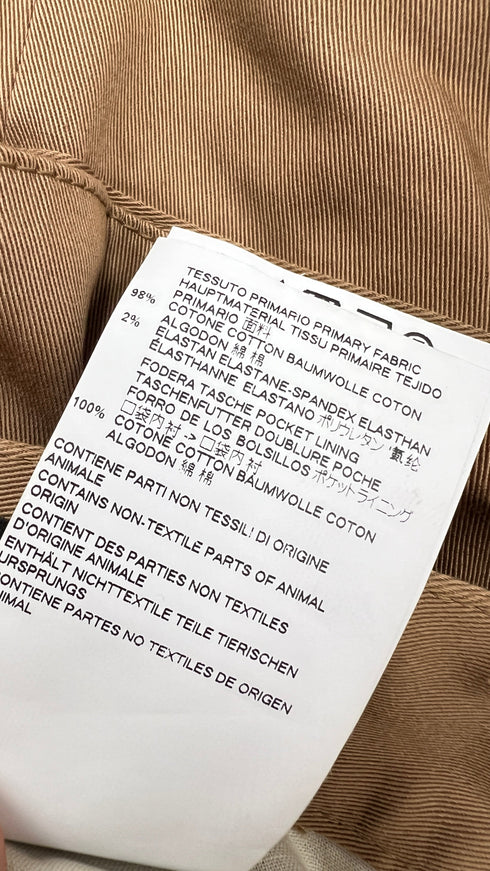 TESSUTO PRIMARIO PRIMARY FABRIC
HAUPTMATERIAL TISSU PRIMAIRE TEJIDO
PRIMARIO 面料
98% COTONE COTTON BAUMWOLLE COTON
ALGODON 綿 棉
2% ELASTAN ELASTANE-SPANDEX ELASTHAN
ÉLASTHANNE ELASTANO ポリウレタン 氨纶
FODERA TASCHE POCKET LINING
TASCHENFUTTER DOUBLURE POCHE
FORRO DE LOS BOLSILLOS ポケットライニング
口袋内衬 -> 口袋内衬
100% COTONE COTTON BAUMWOLLE COTON
ALGODON 綿 棉
CONTIENE PARTI NON TESSILI DI ORIGINE
ANIMALE
CONTAINS NON-TEXTILE PARTS OF ANIMAL
ORIGIN
CONTIENT DES PARTIES NON TEXTILES
D'ORIGINE ANIMALE
ENTHÄLT NICHTTEXTILE TEILE TIERISCHEN
URSPRUNGS
CONTIENE PARTES NO TEXTILES DE ORIGEN